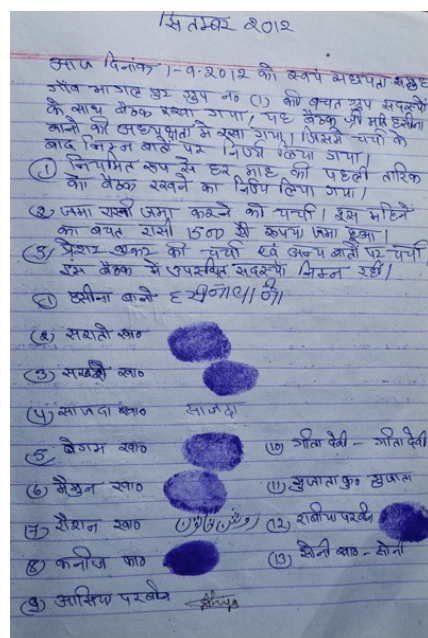 सितम्बर २०१२
आज दिनांक 1-9-2012 को स्वयं सहायता समूह
गाँव भागलपुर ग्रुप न० (1) की बचत ग्रुप सदस्यो
के साथ बैठक रखा गया, यह बैठक श्री मति हसीना
बानो की अध्यक्षता मे रखा गया। जिसमे चर्चा के
बाद निम्न बातों पर निर्णय लिया गया।
(1) नियमित रूप से हर माह की पहली तारिक
को बैठक रखने का निर्णय लिया गया।
(2) जमा राशी जमा करने की चर्चा। इस महिने
का बचत रासी 1500 सौ रूपया जमा हुआ।
(3) प्रेशर कुकर की चर्चा एवं अन्य बातों पर चर्चा
इस बैठक मे उपस्थित सदस्या निम्न रहीं।
(1) हसीना बानो हसीना बानो
(2) सराती खा०
(3) खा०
(4) साजदा खा० साजदा
(5) बेगम खा०
(10) गीता देवी - गीता देवी
(6) मैमुन खा०
(11) सुजाता कु० सुजाता
(7) रौशन खा०
(12) राबीया परवीन
(8) कनीज फा०
(13) सोनी खा० - सोनी
(9) आसिया परवीन